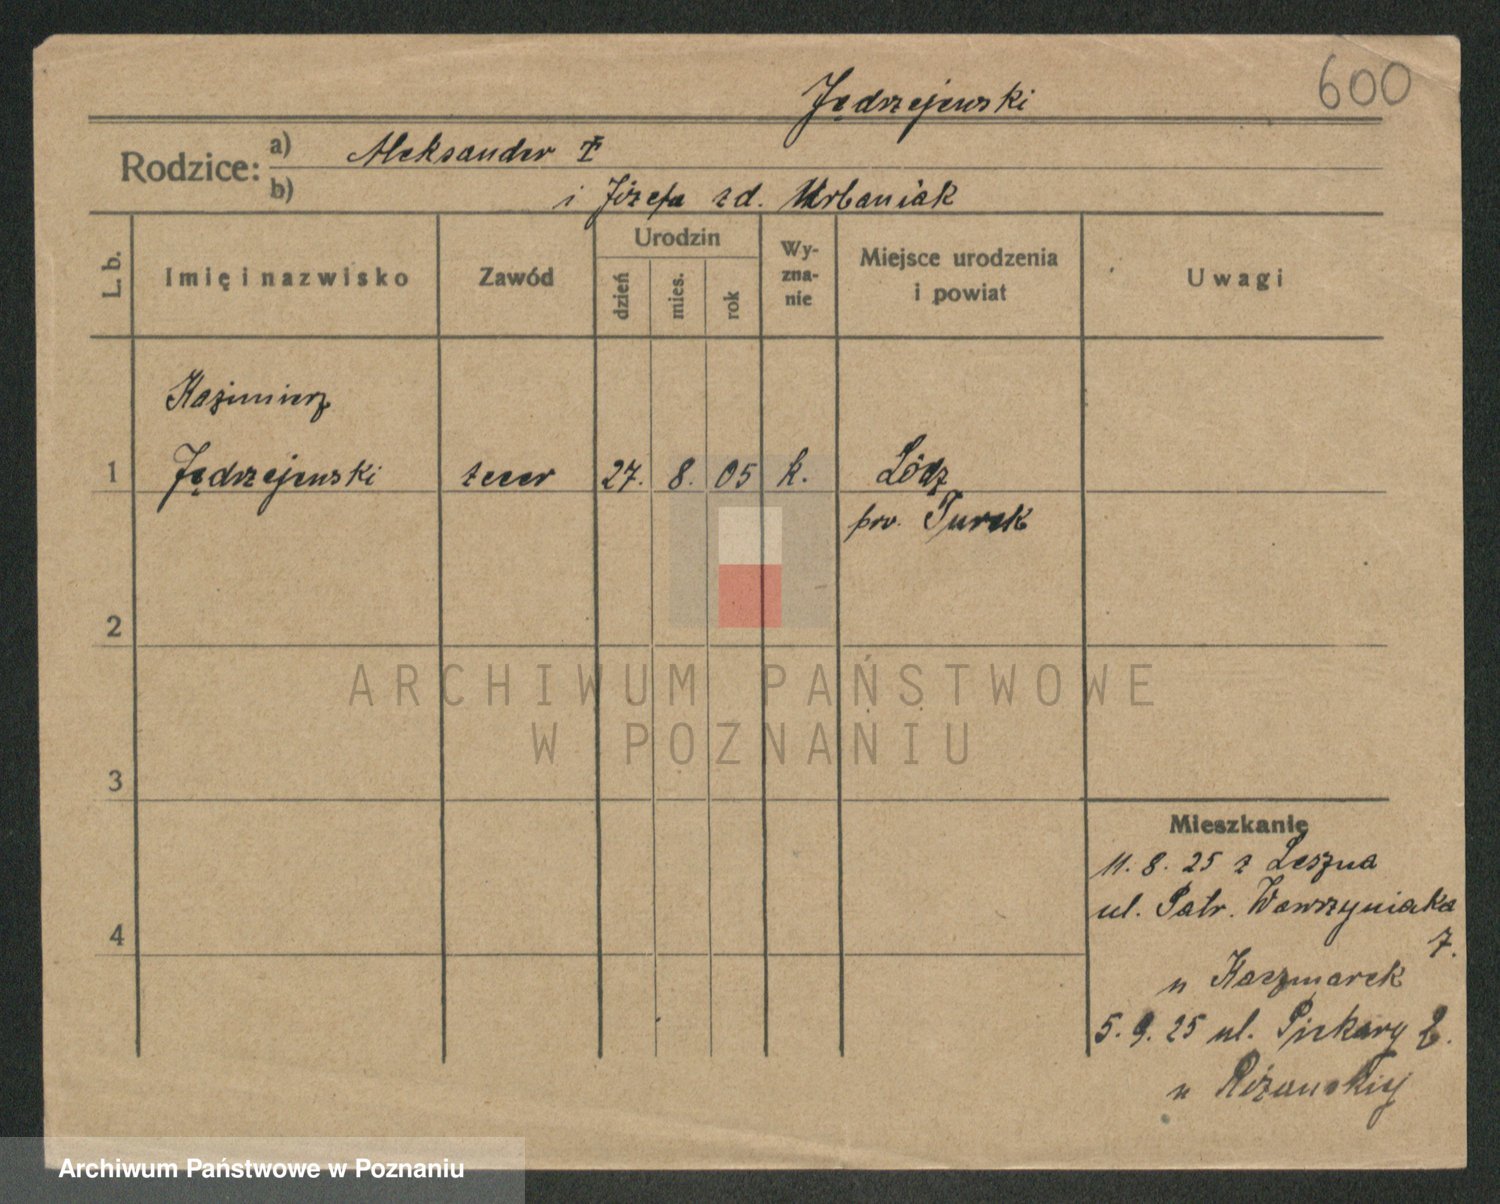 600
Jędrzejewski
Rodzice: a) Aleksander
b) i Józefa zd. Urbaniak
L. b. Imię i nazwisko Zawód Urodzin dzień mies. rok Wy-zna-nie Miejsce urodzenia i powiat Uwagi
Kazimierz
1 Jędrzejewski zecer 27. 8. 05 k. Łódź
pow. Turek
2
ARCHIWUM PAŃSTWOWE
W POZNANIU
3
Mieszkanie
11. 8. 25 z Leszna
ul. Patr. Wawrzyniaka
7.
4
u Kaczmarek
5. 9. 25 ul. Piekary
u Różańskiej
Archiwum Państwowe w Poznaniu